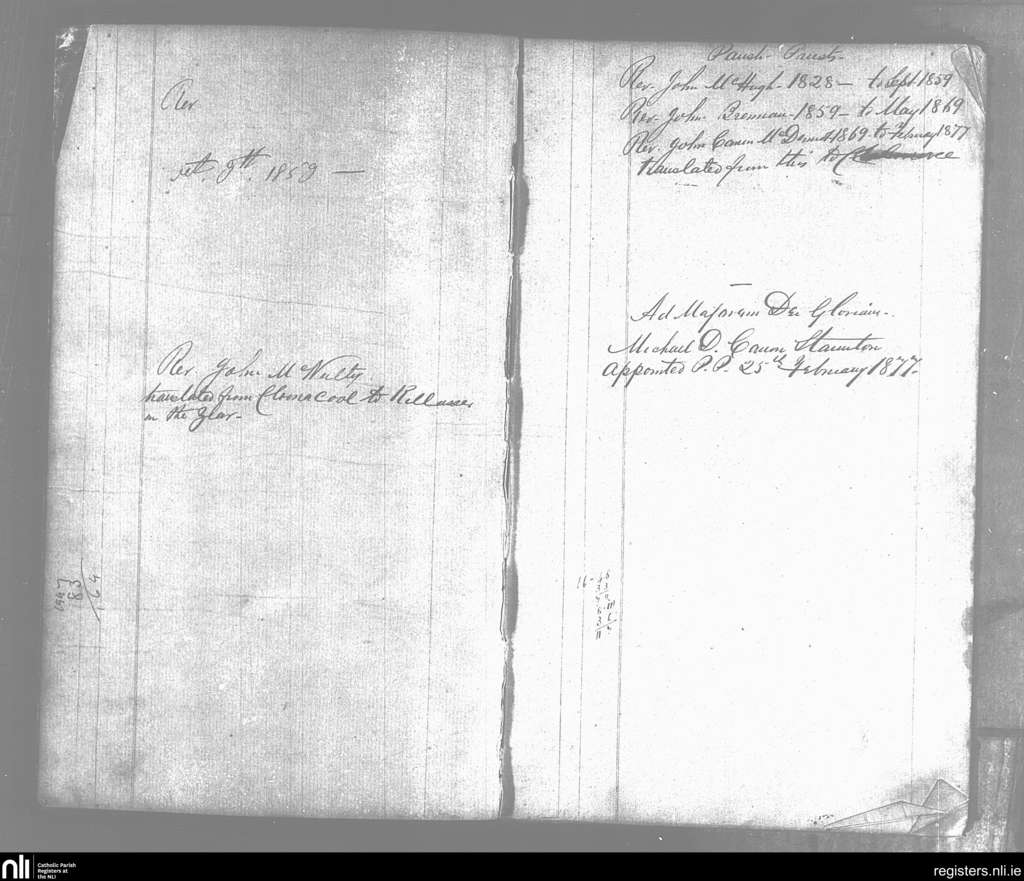 Rev
Oct. 9th. 1859 —
Rev John McNulty
translated from Cloonacool to Killasser
in the Year-
1947
183
164
Parish Priests-
Rev. John McHugh- 1828 — to Sept 1859
Rev. John. Brennan- 1859 — to May 1869
Rev. John Canon McDermott 1869 to February 1877
translated from this to
Ad Majorem Dei Gloriam-.
Michael D. Canon Staunton
appointed P.P. 25th February 1877-
16-
nli Catholic Parish
Registers at
the NLI
registers.nli.ie